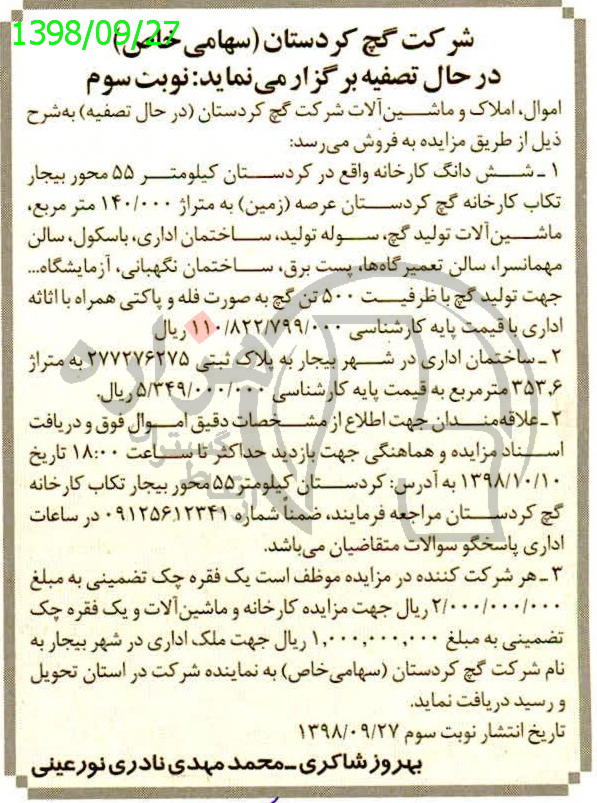 1398/09/27
شرکت گچ کردستان (سهامی خاص)
در حال تصفیه برگزار می‌نماید: نوبت سوم
اموال، املاک و ماشین‌آلات شرکت گچ کردستان (در حال تصفیه) به‌شرح
ذیل از طریق مزایده به فروش می‌رسد:
۱ ـ شش دانگ کارخانه واقع در کردستان کیلومتر ۵۵ محور بیجار
تکاب کارخانه گچ کردستان عرصه (زمین) به متراژ ۱۴۰/۰۰۰ متر مربع،
ماشین‌آلات تولید گچ، سوله تولید، ساختمان اداری، باسکول، سالن
مهمانسرا، سالن تعمیرگاه‌ها، پست برق، ساختمان نگهبانی، آزمایشگاه...
جهت تولید گچ با ظرفیت ۵۰۰ تن گچ به صورت فله و پاکتی همراه با اثاثه
اداری با قیمت پایه کارشناسی ۱۱۰/۸۲۲/۷۹۹/۰۰۰ ریال
۲ ـ ساختمان اداری در شهر بیجار به پلاک ثبتی ۲۷۷۲۷۶۲۷۵ به متراژ
۳۵۳٫۶ مترمربع به قیمت پایه کارشناسی ۵/۳۴۹/۰۰۰/۰۰۰ ریال.
۲ ـ علاقه‌مندان جهت اطلاع از مشخصات دقیق اموال فوق و دریافت
اسناد مزایده و هماهنگی جهت بازدید حداکثر تا ساعت ۱۸:۰۰ تاریخ
۱۳۹۸/۱۰/۱۰ به آدرس: کردستان کیلومتر ۵۵ محور بیجار تکاب کارخانه
گچ کردستان مراجعه فرمایند، ضمناً شماره ۰۹۱۲۵۶۱۲۳۴۱ در ساعات
اداری پاسخگو سوالات متقاضیان می‌باشد.
۳ ـ هر شرکت کننده در مزایده موظف است یک فقره چک تضمینی به مبلغ
۲/۰۰۰/۰۰۰/۰۰۰ ریال جهت مزایده کارخانه و ماشین‌آلات و یک فقره چک
تضمینی به مبلغ ۱,۰۰۰,۰۰۰,۰۰۰ ریال جهت ملک اداری در شهر بیجار به
نام شرکت گچ کردستان (سهامی‌خاص) به نماینده شرکت در استان تحویل
و رسید دریافت نماید.
تاریخ انتشار نوبت سوم ۱۳۹۸/۰۹/۲۷
بهروز شاکری ـ محمد مهدی نادری نورعینی